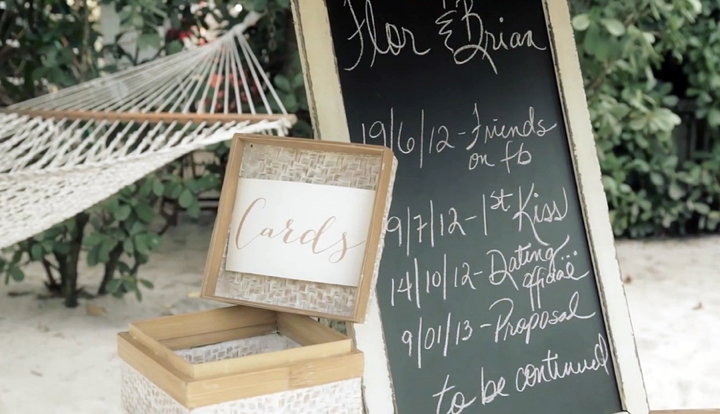 Flor & Brian
19/6/12-Friends
on fb
9/7/12-1st Kiss
14/10/12-Dating
official...
9/01/13-Proposal
to be continued
Cards